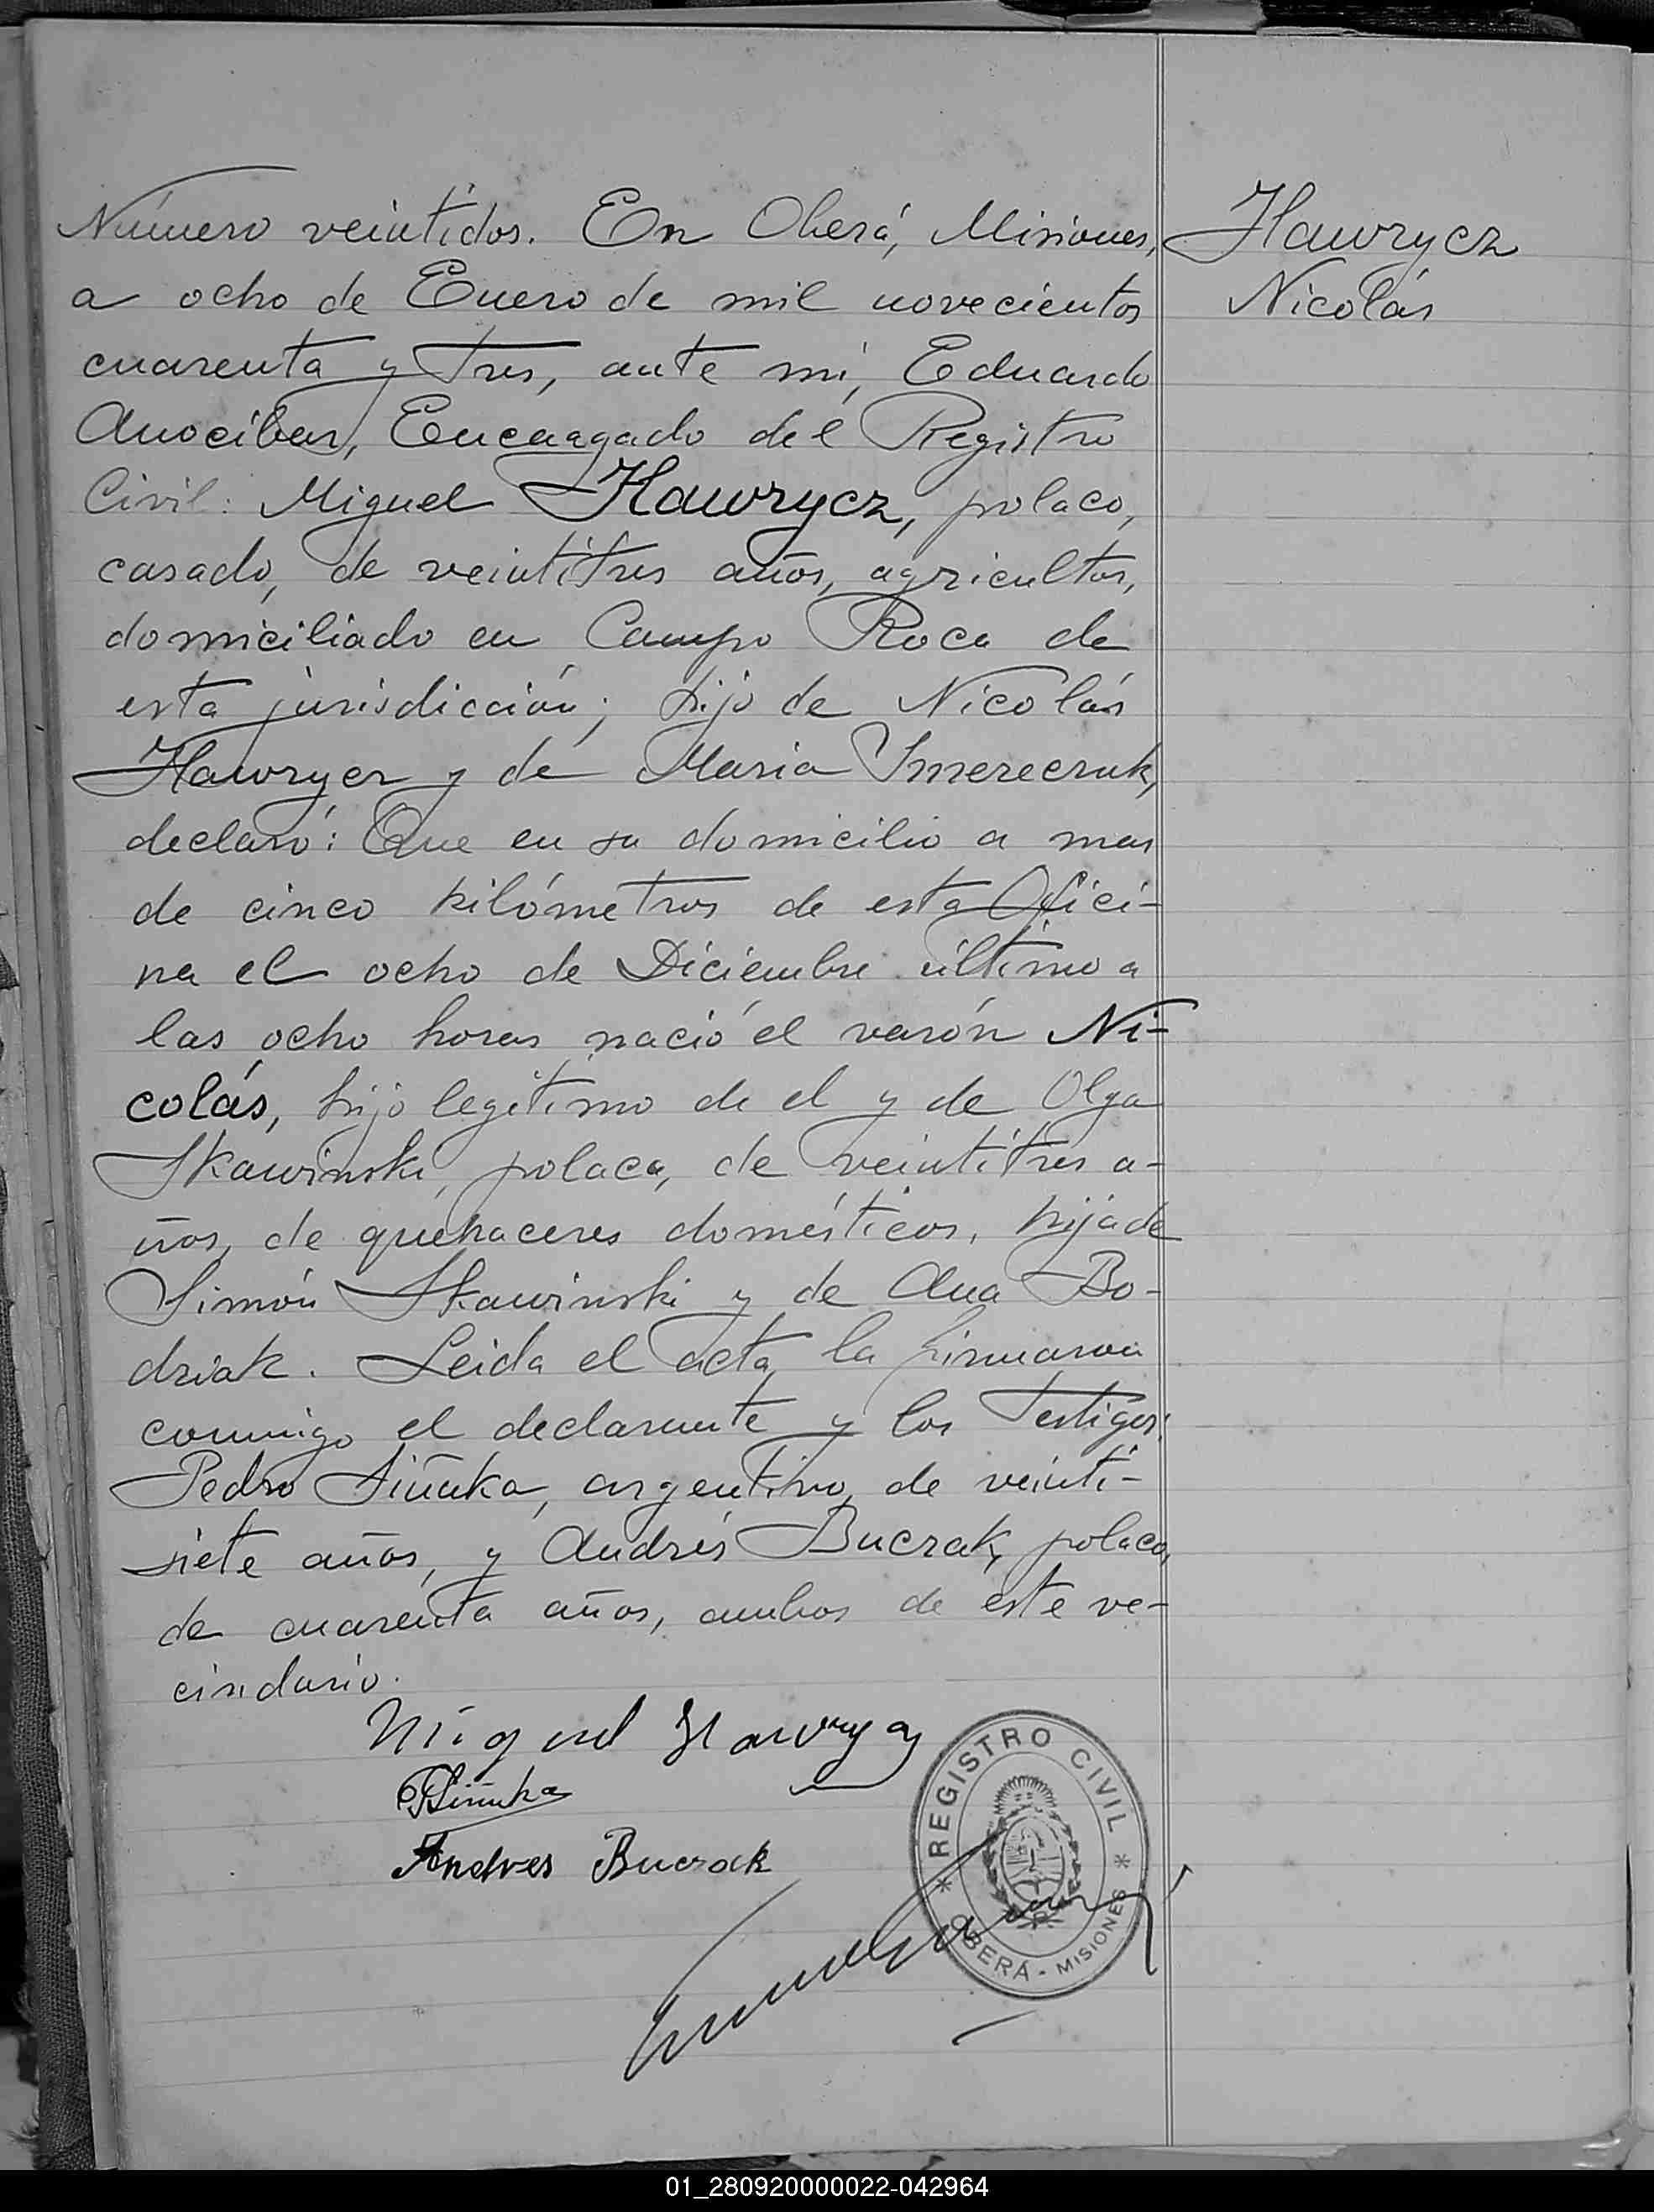 Número veintidos. En Oberá, Misiones,
Hawrycz
Nicolás
a ocho de Enero de mil novecientos
cuarenta y tres, ante mi, Eduardo
Anocibar, Encargado del Registro
Civil: Miguel Hawrycz, polaco,
casado, de veintitres años, agricultor,
domiciliado en Campo Roca de
esta jurisdicción; hijo de Nicolás
Hawrycz y de Maria Smereczuk,
declaró: Que en su domicilio a mas
de cinco kilómetros de esta Ofici-
na el ocho de Diciembre último a
las ocho horas nació el varón Ni-
colás, hijo legítimo de el y de Olga
Skawinski, polaca, de veintitres a-
ños, de quehaceres domésticos, hija de
Simón Skawinski y de Ana Bo-
driak. Leida el acta, la firmaron
conmigo el declarante y los testigos:
Pedro Siñuka, argentino, de veinti-
siete años, y Andrés Buczak, polaco,
de cuarenta años, ambos de este ve-
cindario.
Miguel Hawrycz
PSiñuka
Andres Buczak
REGISTRO CIVIL
OBERÁ - MISIONES
01_280920000022-042964